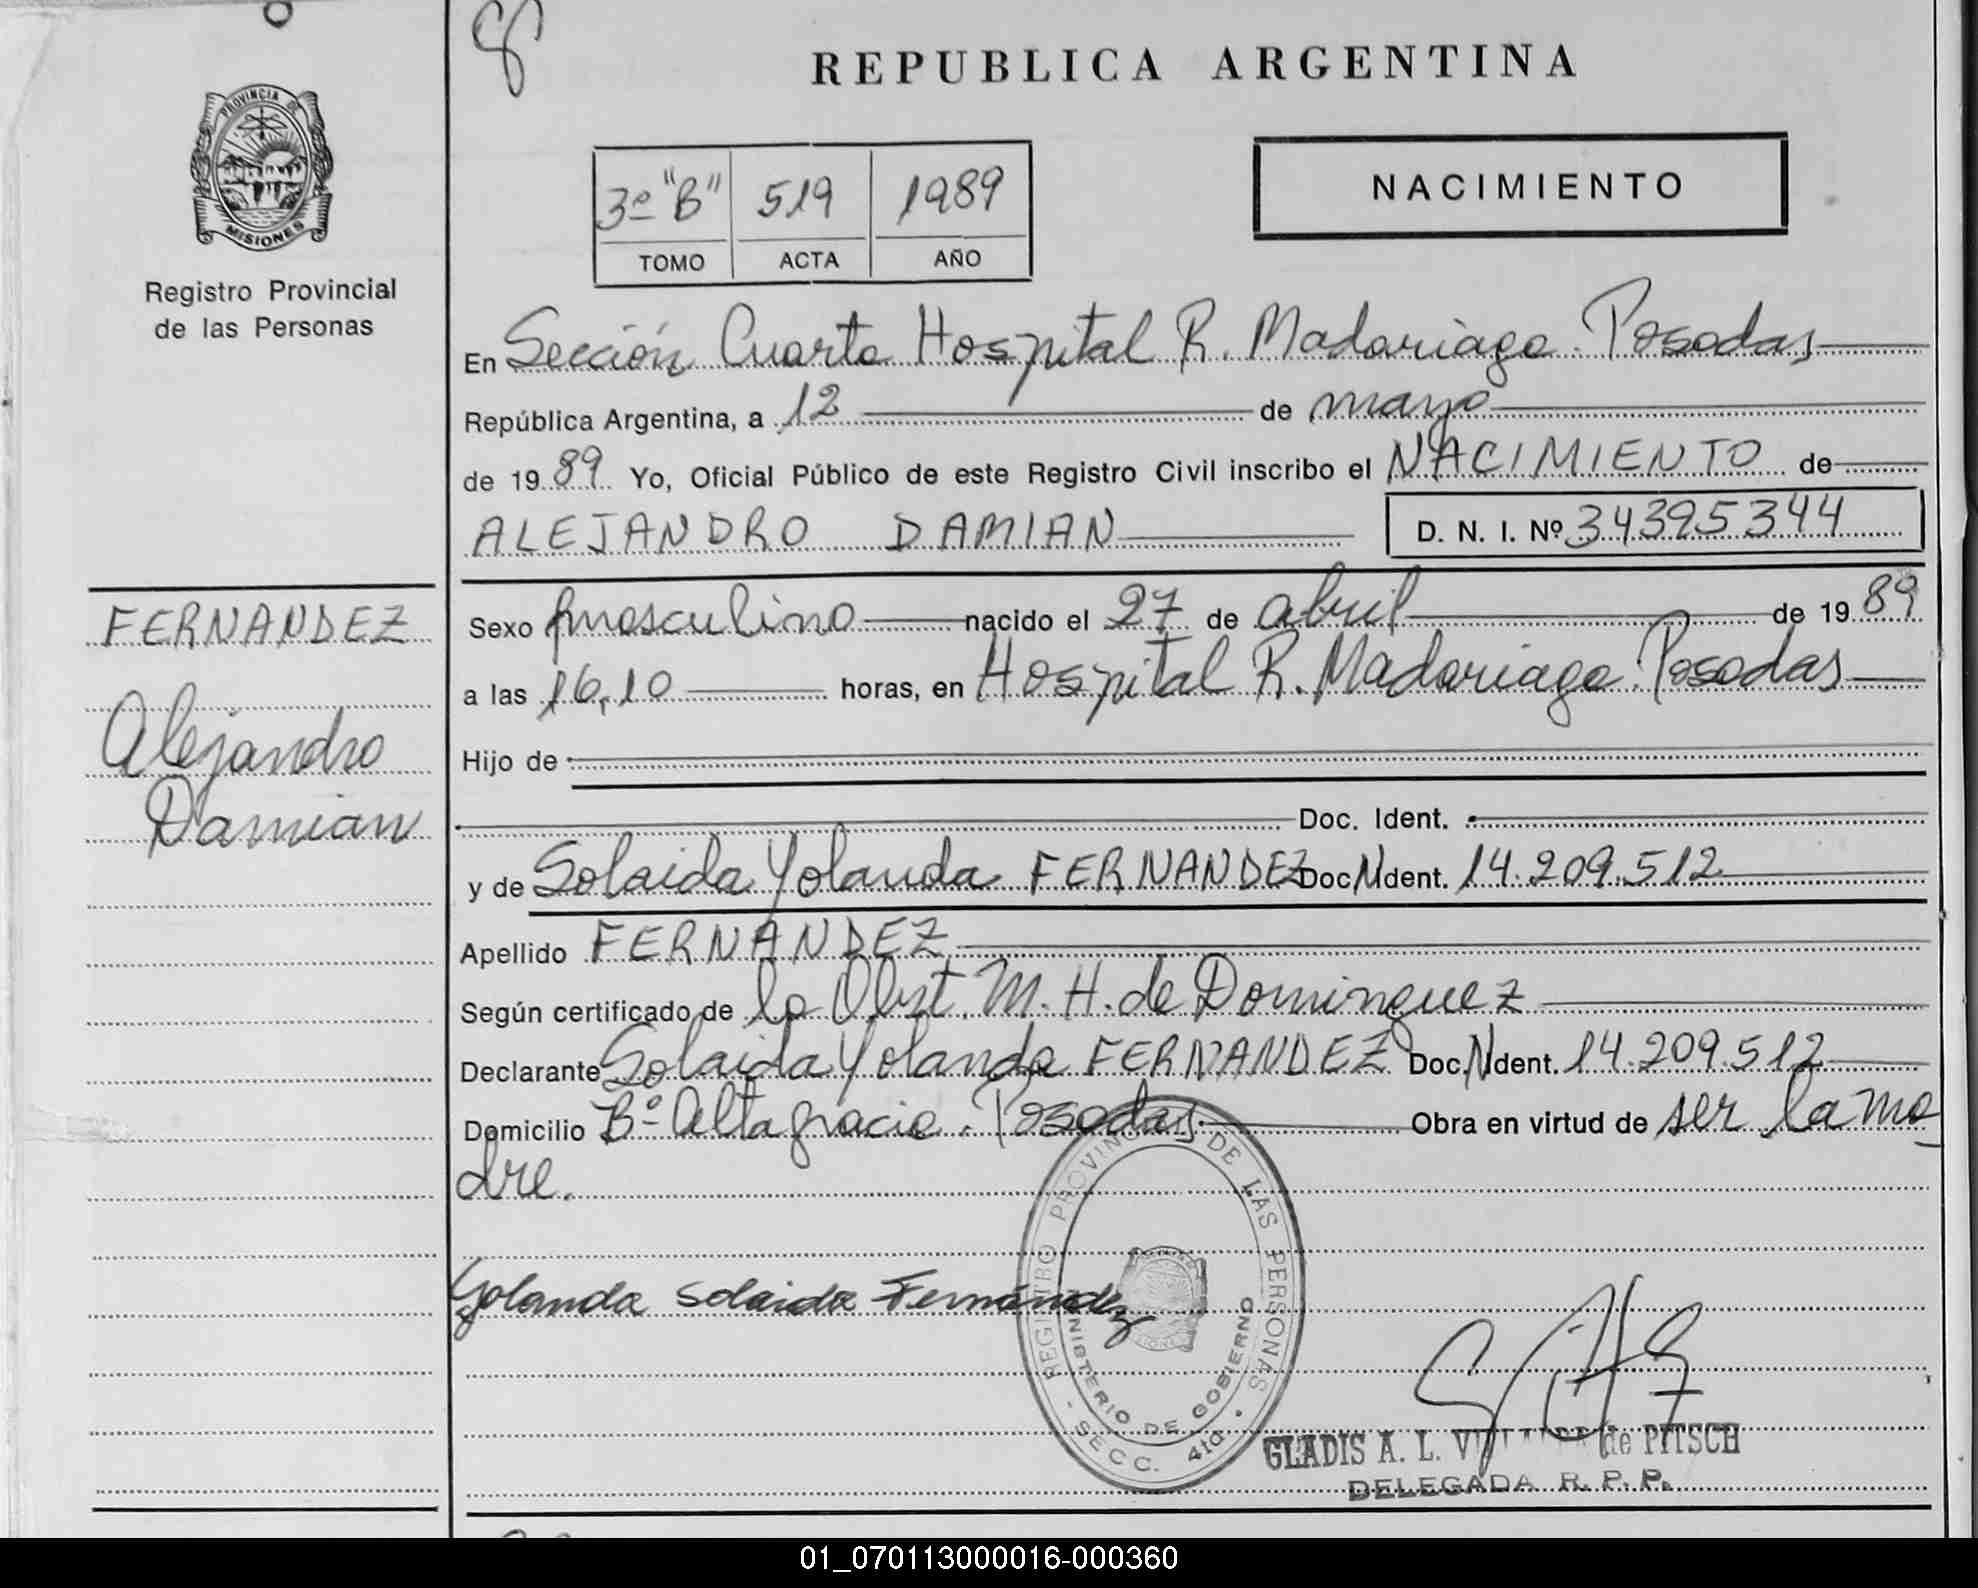 8
REPUBLICA ARGENTINA
PROVINCIA DE
MISIONES
Registro Provincial
de las Personas
3º "B" 519 1989
TOMO ACTA AÑO
NACIMIENTO
En Sección Cuarta Hospital R. Madariaga. Posadas
República Argentina, a 12 de mayo
de 1989 Yo, Oficial Público de este Registro Civil inscribo el NACIMIENTO de
ALEJANDRO DAMIAN D. N. I. Nº 34395344
FERNANDEZ
Alejandro
Damian
Sexo masculino nacido el 27 de abril de 1989
a las 16,10 horas, en Hospital R. Madariaga. Posadas
Hijo de
Doc. Ident.
y de Solaida Yolanda FERNANDEZ Doc. N Ident. 14.209.512
Apellido FERNANDEZ
Según certificado de la Obst. M. H. de Dominguez
Declarante Solaida Yolanda FERNANDEZ Doc. N Ident. 14.209.512
Domicilio Bº Altagracia. Posadas Obra en virtud de ser la ma
dre.
Yolanda Solaida Fernández
REGISTRO PROVINCIAL DE LAS PERSONAS
MINISTERIO DE GOBIERNO
SECC. 4ta.
GLADIS A. L. de PITSCH
DELEGADA R. P. P.
01_070113000016-000360